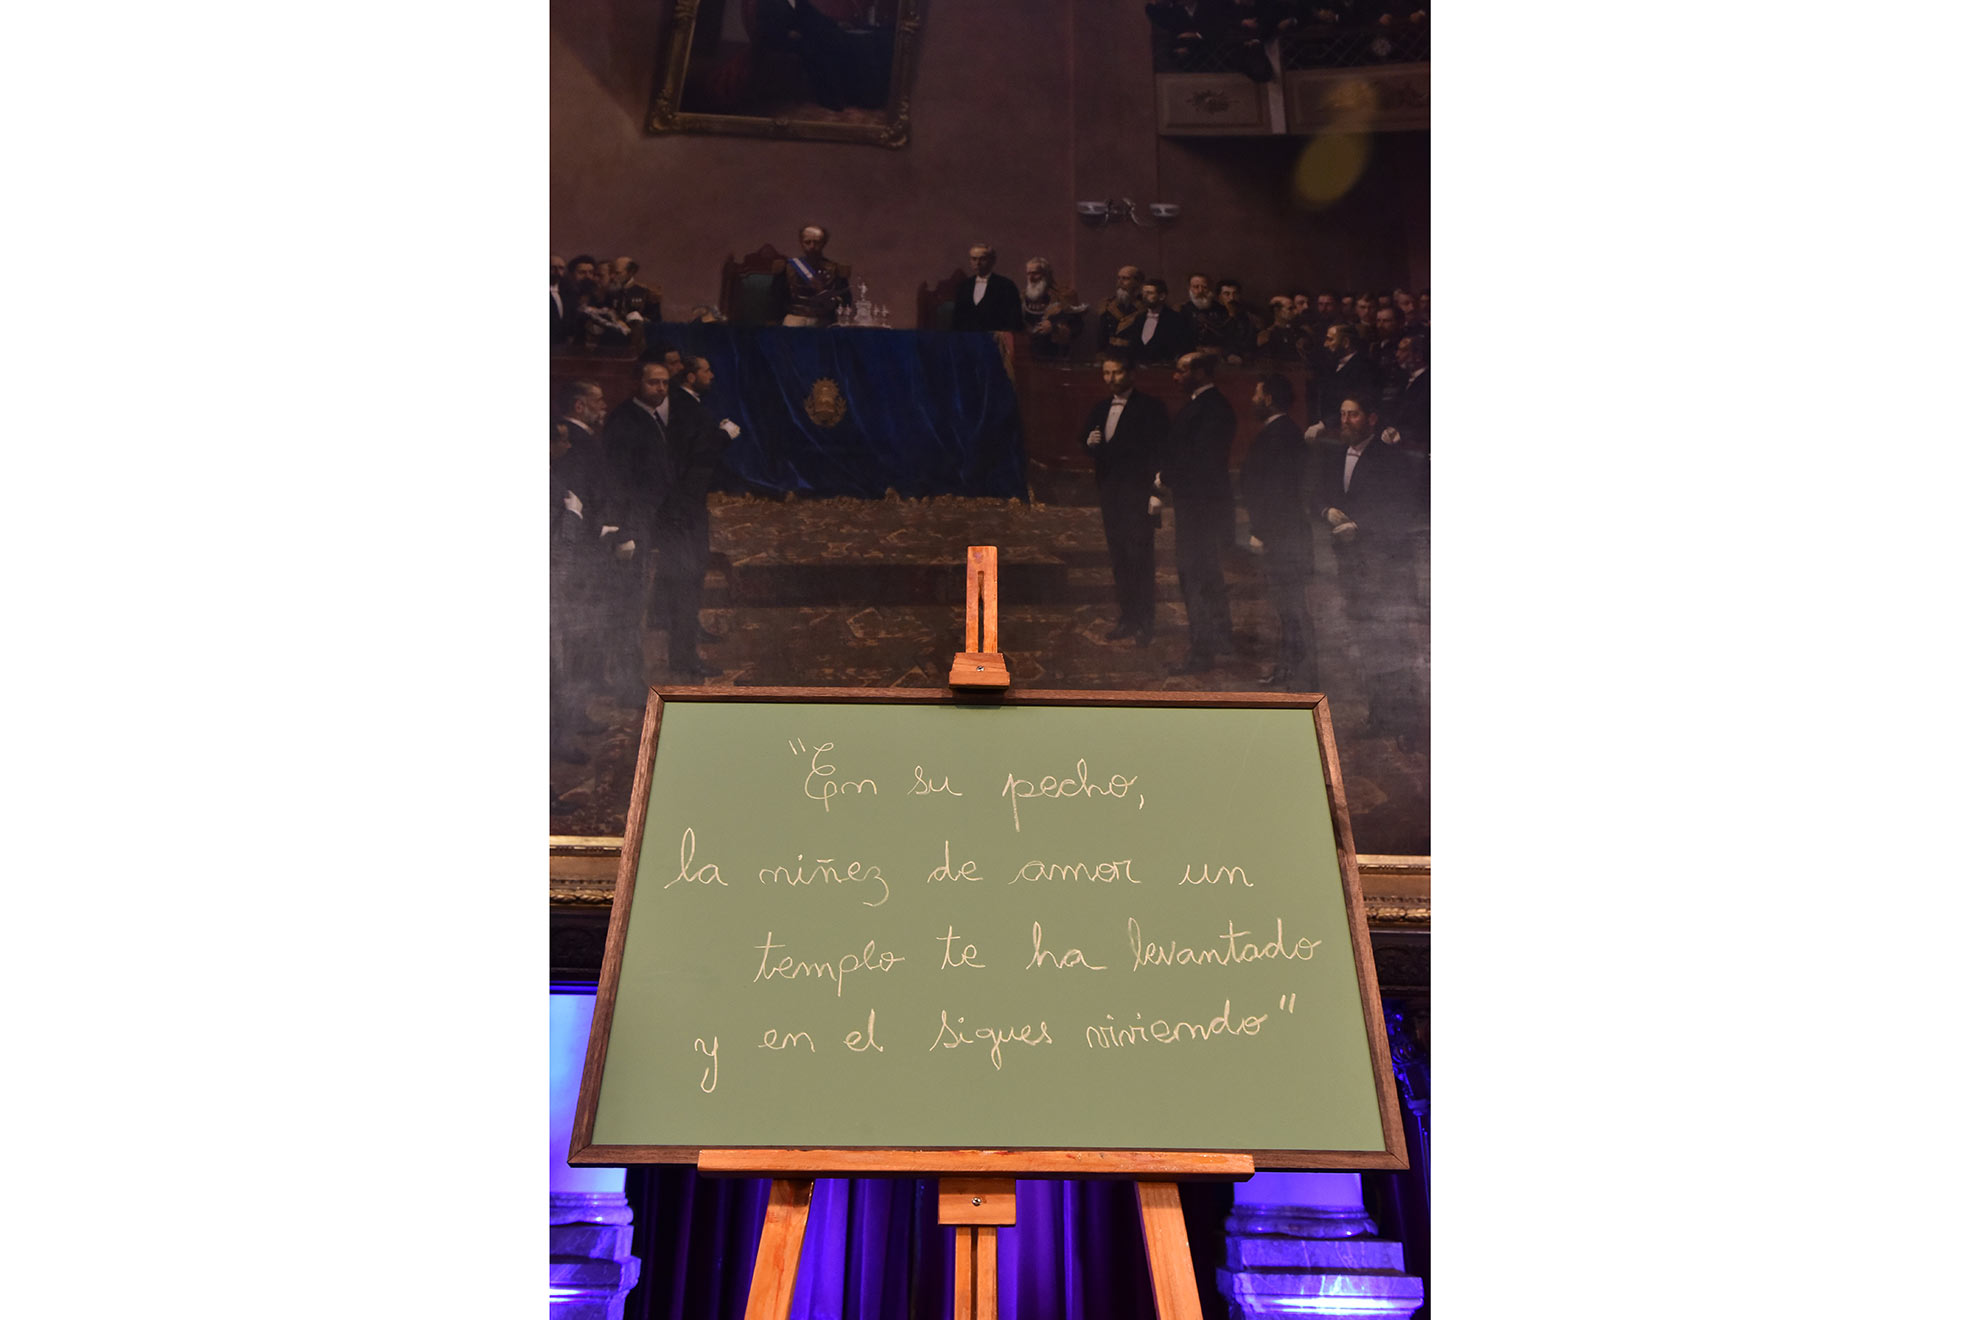 "En su pecho,
la niñez de amor un
templo te ha levantado
y en el sigues viviendo"